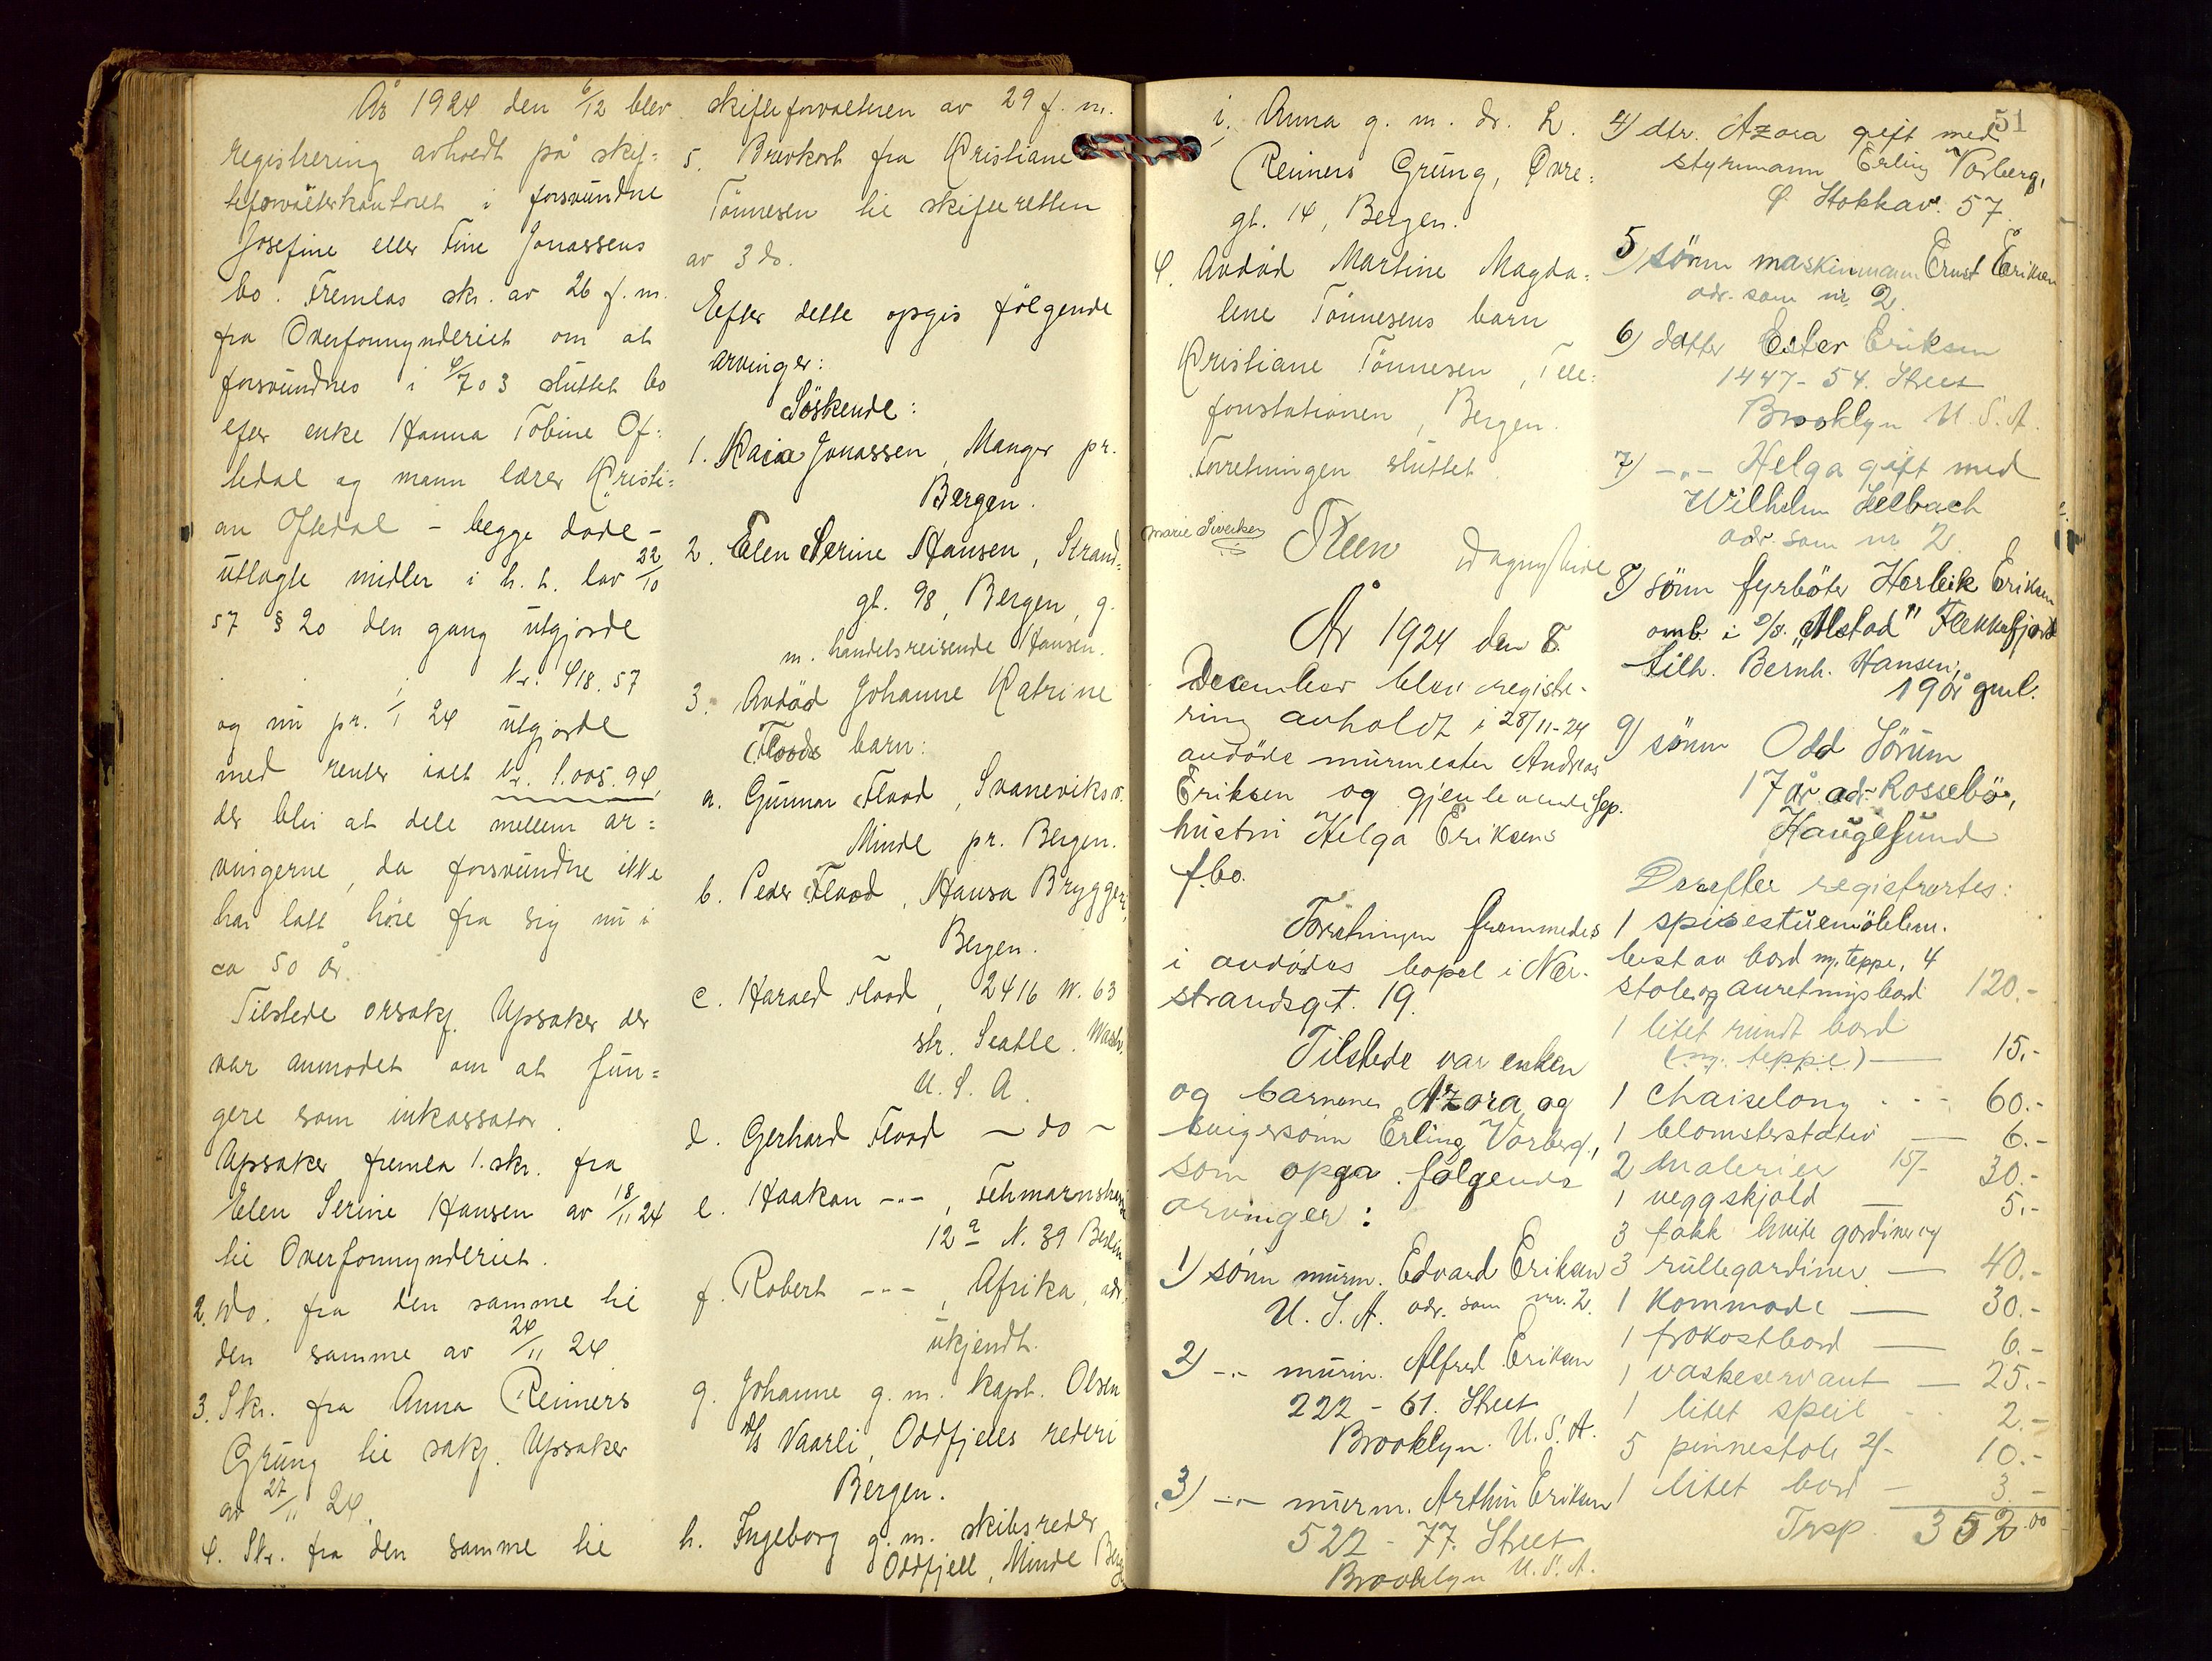 År 1924 den 6/12 blev
registrering avholdt på skif=
teforvalterkontoret i forsvundne
Josefine eller Fine Jonassens
bo. Fremlas skr. av 26 f. m.
fra Overformynderiet om at
forsvundnes i 6/7 03 sluttet bo
efter enke Hanna Tobine Of=
tedal og mann lærer Kristi=
an Oftedal – begge døde –
utlagte midler i h. t. lov 22/10
57 § 20 den gang utgjorde
kr. 418.57
og nu pr. 1/1 24 utgjorde
med renter ialt kr. 1.005.94,
der blir at dele mellem ar=
vingerne, da forsvundne ikke
har latt høre fra sig nu i
ca 50 år.
Tilstede orsakf. Upsaker der
var anmodet om at fun=
gere som inkassator.
Upsaker fremla 1. skr. fra
Elen Serine Hansen av 18/11 24
til Overformynderiet.
2. do. fra den samme til
den samme av 24/11 24
3. Skr. fra Anna Reimers
Grung til sakf. Upsaker
av 27/11 24.
4. Skr. fra den samme til
skifteforvalteren av 29 f. m.
5. Brevkort fra Kristiane
Tønnesen til skifteretten
av 3 ds.
Efter dette opgis følgende
arvinger:
Søskende:
1. Kaia Jonassen, Manger pr.
Bergen.
2. Elen Serine Hansen, Strand=
gt. 98, Bergen, g.
m. handelsreisende Hansen.
3. Avdød Johanne Katrine
Floods barn:
a. Gunnar Flood, Svaneviksv.
Minde pr. Bergen.
b. Peder Flood, Hansa Bryggeri,
Bergen.
c. Harald Flood, 2416 W. 63
str. Seatle. Wash.
U. S. A.
d. Gerhard Flood – do –
e. Haakan -"-, Fehmarnstrasse
12 a N. 39 Berlin
f. Robert -"-, Afrika, adr.
ukjendt.
g. Johanne g. m. kapt. Olsen
d/s Vaarli, Oddfjells rederi
Bergen.
h. Ingeborg g. m. skibsreder
Oddfjell, Minde Bergen
51
i. Anna g. m. dr. L.
Reimers Grung, Øvre=
gt. 14, Bergen.
4. Avdød Martine Magda=
lene Tønnesens barn
Kristiane Tønnesen, Tele=
fonstationen, Bergen.
Forretningen sluttet.
Marie Sivertsen
År 1924 den 8.
December blev registre-
ring avholdt i 28/11-24
avdøde murmester Andreas
Eriksen og gjenlevende
hustru Helga Eriksens
f.bo.
Forretningen fremmedes
i avdødes bopel i Nær-
strandsgt. 19.
Tilstede var enken
og barnene Azora, og
svigersønn Erling Vorberg,
som opga følgende
arvinger:
1) sønn murm. Edvard Eriksen
U. S. A. adr. som nr. 2.
2) -"- murm. Alfred Eriksen
222 - 61. Street
Brooklyn. U. S. A.
3) -"- murm. Arthur Eriksen
522 - 77. Street
Brooklyn U. S. A.
4) dtr. Azora gift med
styrmann Erling Vorberg,
Ø. Stokkav. 57.
5) sønn maskinmann Ernst Eriksen
adr. som nr. 2.
6) datter Ester Eriksen
1447 - 54. Street
Brooklyn U. S. A.
7) -"- Helga gift med
Wilhelm Selbach
adr. som nr 2.
8) sønn fyrbøter Herleik Eriksen
omb. i D/S. "Alstad" Flekkefjord
tilh. Bernh. Hansen,
19 år gml.
9) sønn Odd Sørum
17 år adr. Rossebø,
Haugesund
Derefter registrertes:
1 spisestuemöblem.
best av bord m. teppe, 4
stoler og anretningsbord 120.-
1 litet rundt bord
(m. teppe) — 15.-
1 Chaiselong - - - 60.-
1 blomsterstativ — 6.-
2 malerier 15/- 30.-
1 veggskjold — 5.-
3 fakk hvite gardiner og
3 rullegardiner — 40.-
1 Kommode — 30.-
1 frokostbord — 6.-
1 vaskeservant — 25.-
1 litet speil - - 2.-
5 pinnestole 2/- 10.-
1 litet bord — 3.-
Trsp. 352.00